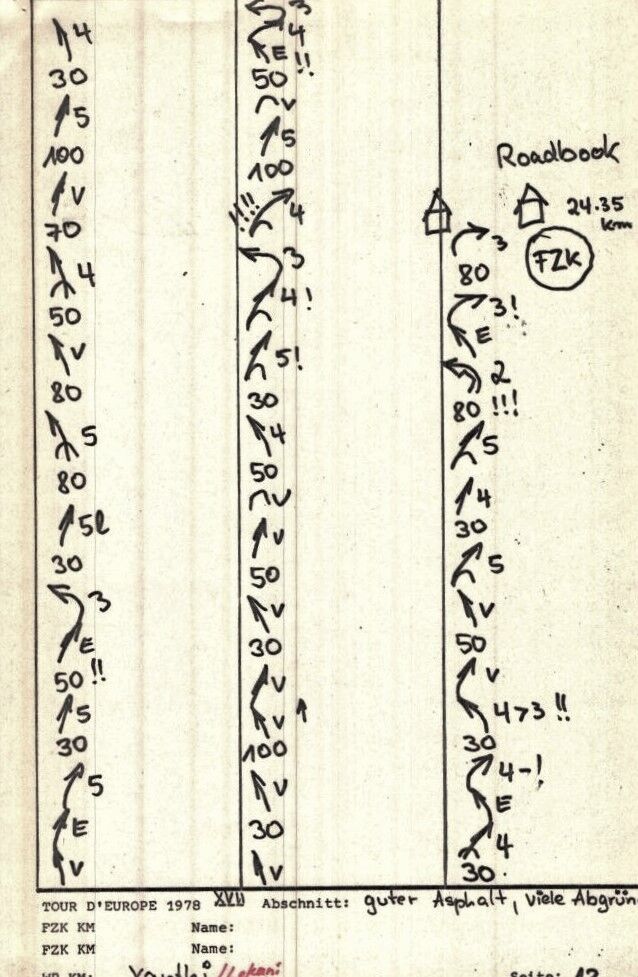 4
30
5
100
V
70
4
50
V
80
5
80
5l
30
3
E
50 !!
5
30
5
E
V
3
4
E
50 !!
V
5
100
!!!! 4
3
4 !
5!
30
4
50
V
V
50
V
30
V
V
100
V
30
V
Roadbook
24.35
km
FZK
3
80
3!
E
2
80 !!!
5
4
30
5
V
50
V
4>3 !!
30
4-!
E
4
30
TOUR D'EUROPE 1978 XVII Abschnitt: guter Asphalt, viele
FZK KM Name:
FZK KM Name: